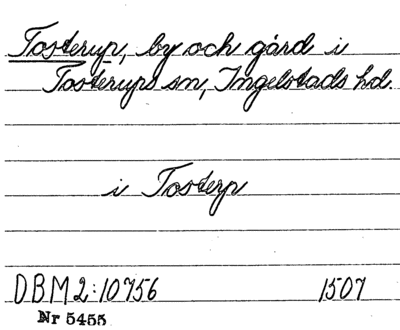 Tosterup, by och gård i
Tosterups sn, Ingelstads hd.
i Tosterp
DBM 2:10756 1507
Nr 5455